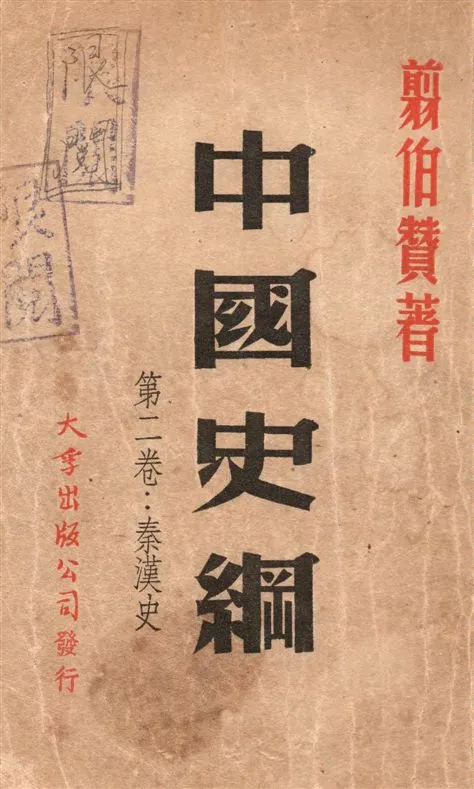 翦伯贊著
中國史綱
第二卷：秦漢史
大孚出版公司發行
限閱
限閱